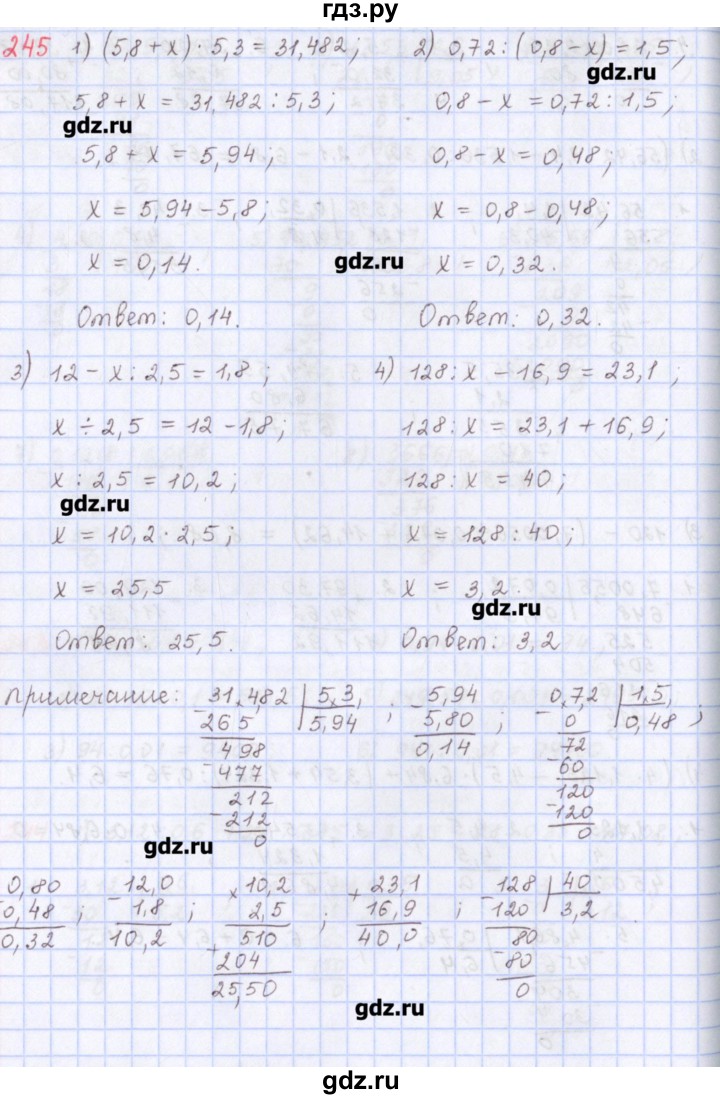 гдз.ру
245 1) (5,8 + x) · 5,3 = 31,482; 2) 0,72 : (0,8 - x) = 1,5;
gdz.ru
5,8 + x = 31,482 : 5,3; 0,8 - x = 0,72 : 1,5;
gdz.ru
5,8 + x = 5,94; 0,8 - x = 0,48;
x = 5,94 - 5,8; x = 0,8 - 0,48;
x = 0,14. gdz.ru x = 0,32.
Ответ: 0,14. Ответ: 0,32.
3) 12 - x : 2,5 = 1,8; 4) 128 : x - 16,9 = 23,1;
x ÷ 2,5 = 12 - 1,8; 128 : x = 23,1 + 16,9;
x : 2,5 = 10,2; 128 : x = 40;
gdz.ru
x = 10,2 · 2,5; x = 128 : 40;
x = 25,5 x = 3,2.
gdz.ru
Ответ: 25,5. Ответ: 3,2
Примечание: 31,482 | 5,3 ; 5,94 ; 0,72 | 1,5 ;
- 265 | 5,94 - 5,80 - 0 | 0,48
498 0,14 72
- 477 - 60
212 120
- 212 - 120
0 0
gdz.ru
0,80 ; - 12,0 ; × 10,2 ; + 23,1 ; 128 | 40 .
0,48 1,8 2,5 16,9 - 120 | 3,2
0,32 10,2 510 40,0 80
+ 204 - 80
25,50 0
gdz.ru
gdz.ru